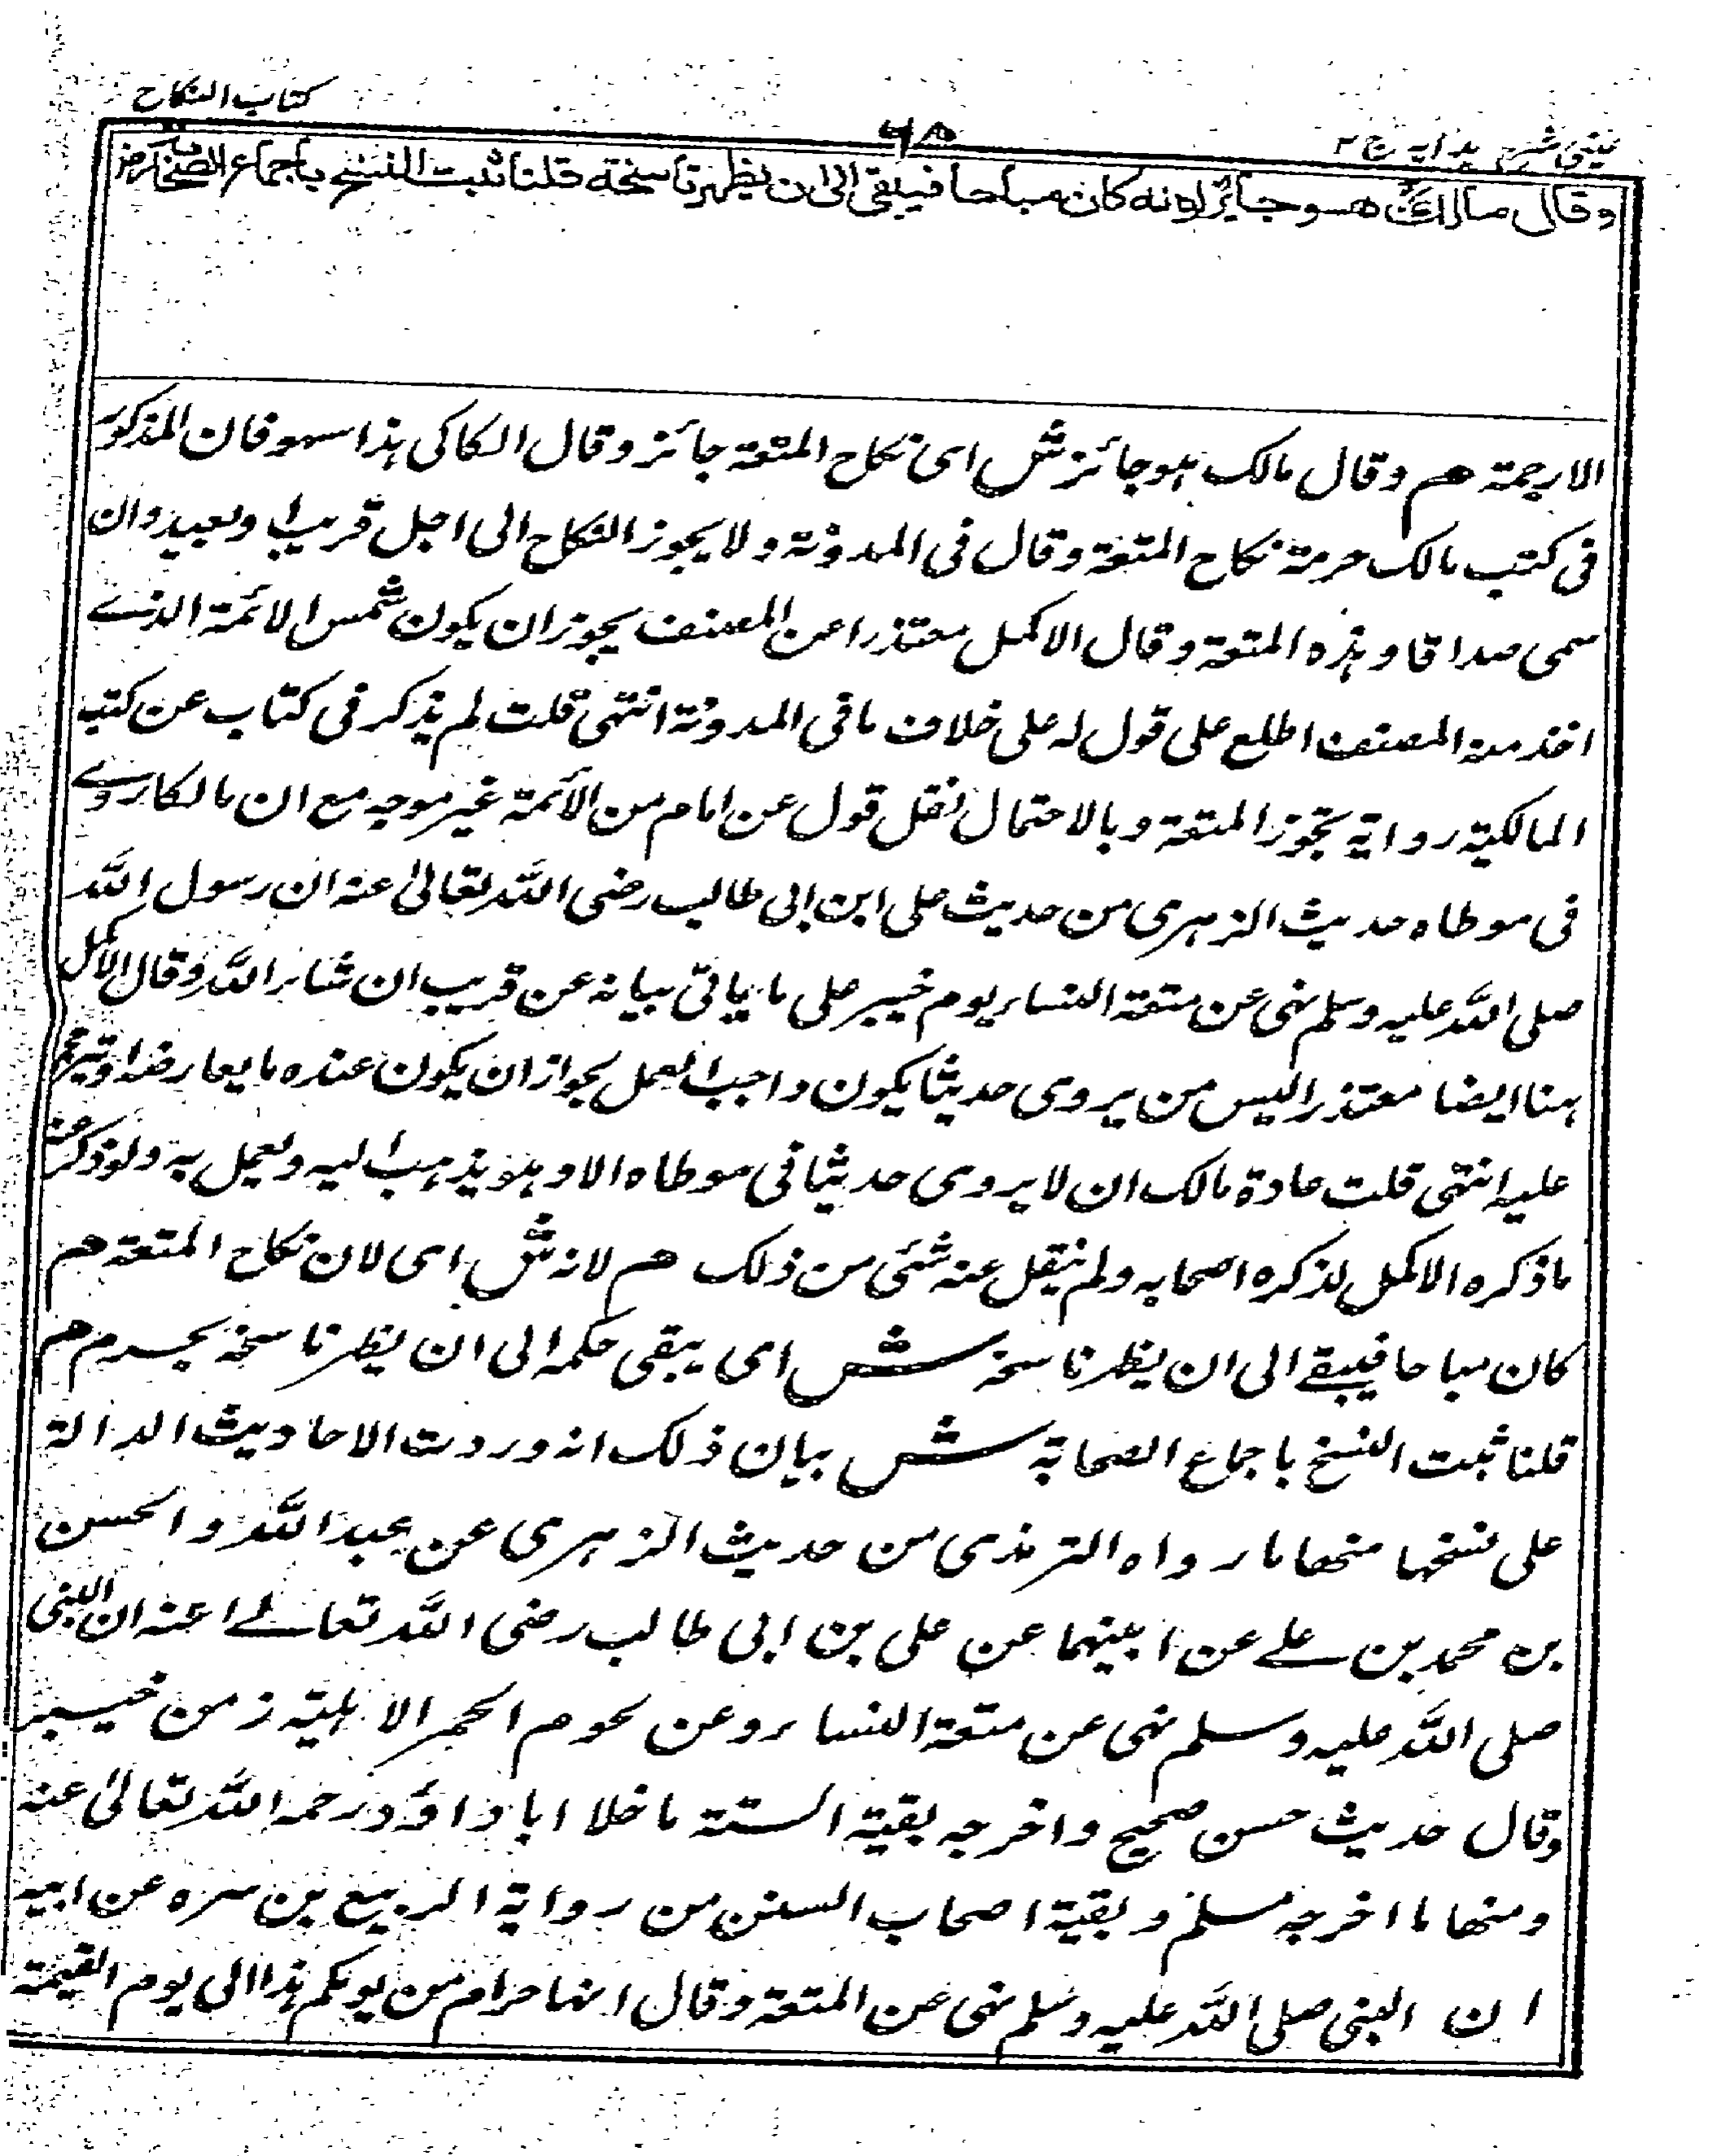 عینی شرح ہدایہ ج ۲
۶۸
کتاب النکاح
وقال مالكؒ هو جائز لانه كان مباحا فيبقى الى ان يظهر ناسخه قلنا ثبت النسخ باجماع الصحابة رض
الاربعة هم وقال مالک ہو جائز ش ای نکاح المتعة جائز وقال الکاکی ہذا سہو فان المذکور
فی کتب مالک حرمة نکاح المتعة وقال فی المدونة ولا یجوز النکاح الی اجل قریب او بعید وان
سمی صداقا وہذہ المتعة وقال الاکمل معتذرا عن المصنف یجوز ان یکون شمس الائمة الذے
اخذ منہ المصنف اطلع علی قول لہ علی خلاف ما فی المدونة انتہی قلت لم یذکر فی کتاب عن کتب
المالکیة روایة تجوز المتعة وبالاحتمال نقل قول عن امام من الائمة غیر موجہ مع ان مالکا روے
فی موطاہ حدیث الزہری من حدیث علی ابن ابی طالب رضی اللہ تعالیٰ عنہ ان رسول اللہ
صلی اللہ علیہ وسلم نہی عن متعة النساء یوم خیبر علی ما یاتی بیانہ عن قریب ان شاء اللہ وقال الاکمل
ہنا ایضا معتذرا لیس من یروی حدیثا یکون واجب العمل لجواز ان یکون عندہ ما یعارضہ او ترجح
علیہ انتہی قلت عادة مالک ان لا یروی حدیثا فی موطاہ الا وہو یذہب الیہ ویعمل بہ ولو ذکر عنہ
ما ذکرہ الاکمل لذکرہ اصحابہ ولم ینقل عنہ شئی من ذلک هم لانہ ش ای لان نکاح المتعة هم
کان مباحا فیبقے الی ان یظہر ناسخہ ش ای یبقی حکمہ الی ان یظہر ناسخہ بحرم هم
قلنا ثبت النسخ باجماع الصحابة ش بیان ذلک انہ وردت الاحادیث الدالة
علی نسخہا منھا ما رواہ الترمذی من حدیث الزہری عن عبد اللہ والحسن
بن محمد بن علے عن ابیہما عن علی بن ابی طالب رضی اللہ تعالے عنہ ان النبی
صلی اللہ علیہ وسلم نہی عن متعة النساء وعن لحوم الحمر الاہلیة زمن خیبر
وقال حدیث حسن صحیح واخرجہ بقیة الستة ما خلا ابا داؤد رحمہ اللہ تعالیٰ عنہ
ومنھا ما اخرجہ مسلم وبقیة اصحاب السنن من روایة الربیع بن سبرہ عن ابیہ
ان النبی صلی اللہ علیہ وسلم نہی عن المتعة وقال انہا حرام من یومکم ہذا الی یوم القیمة